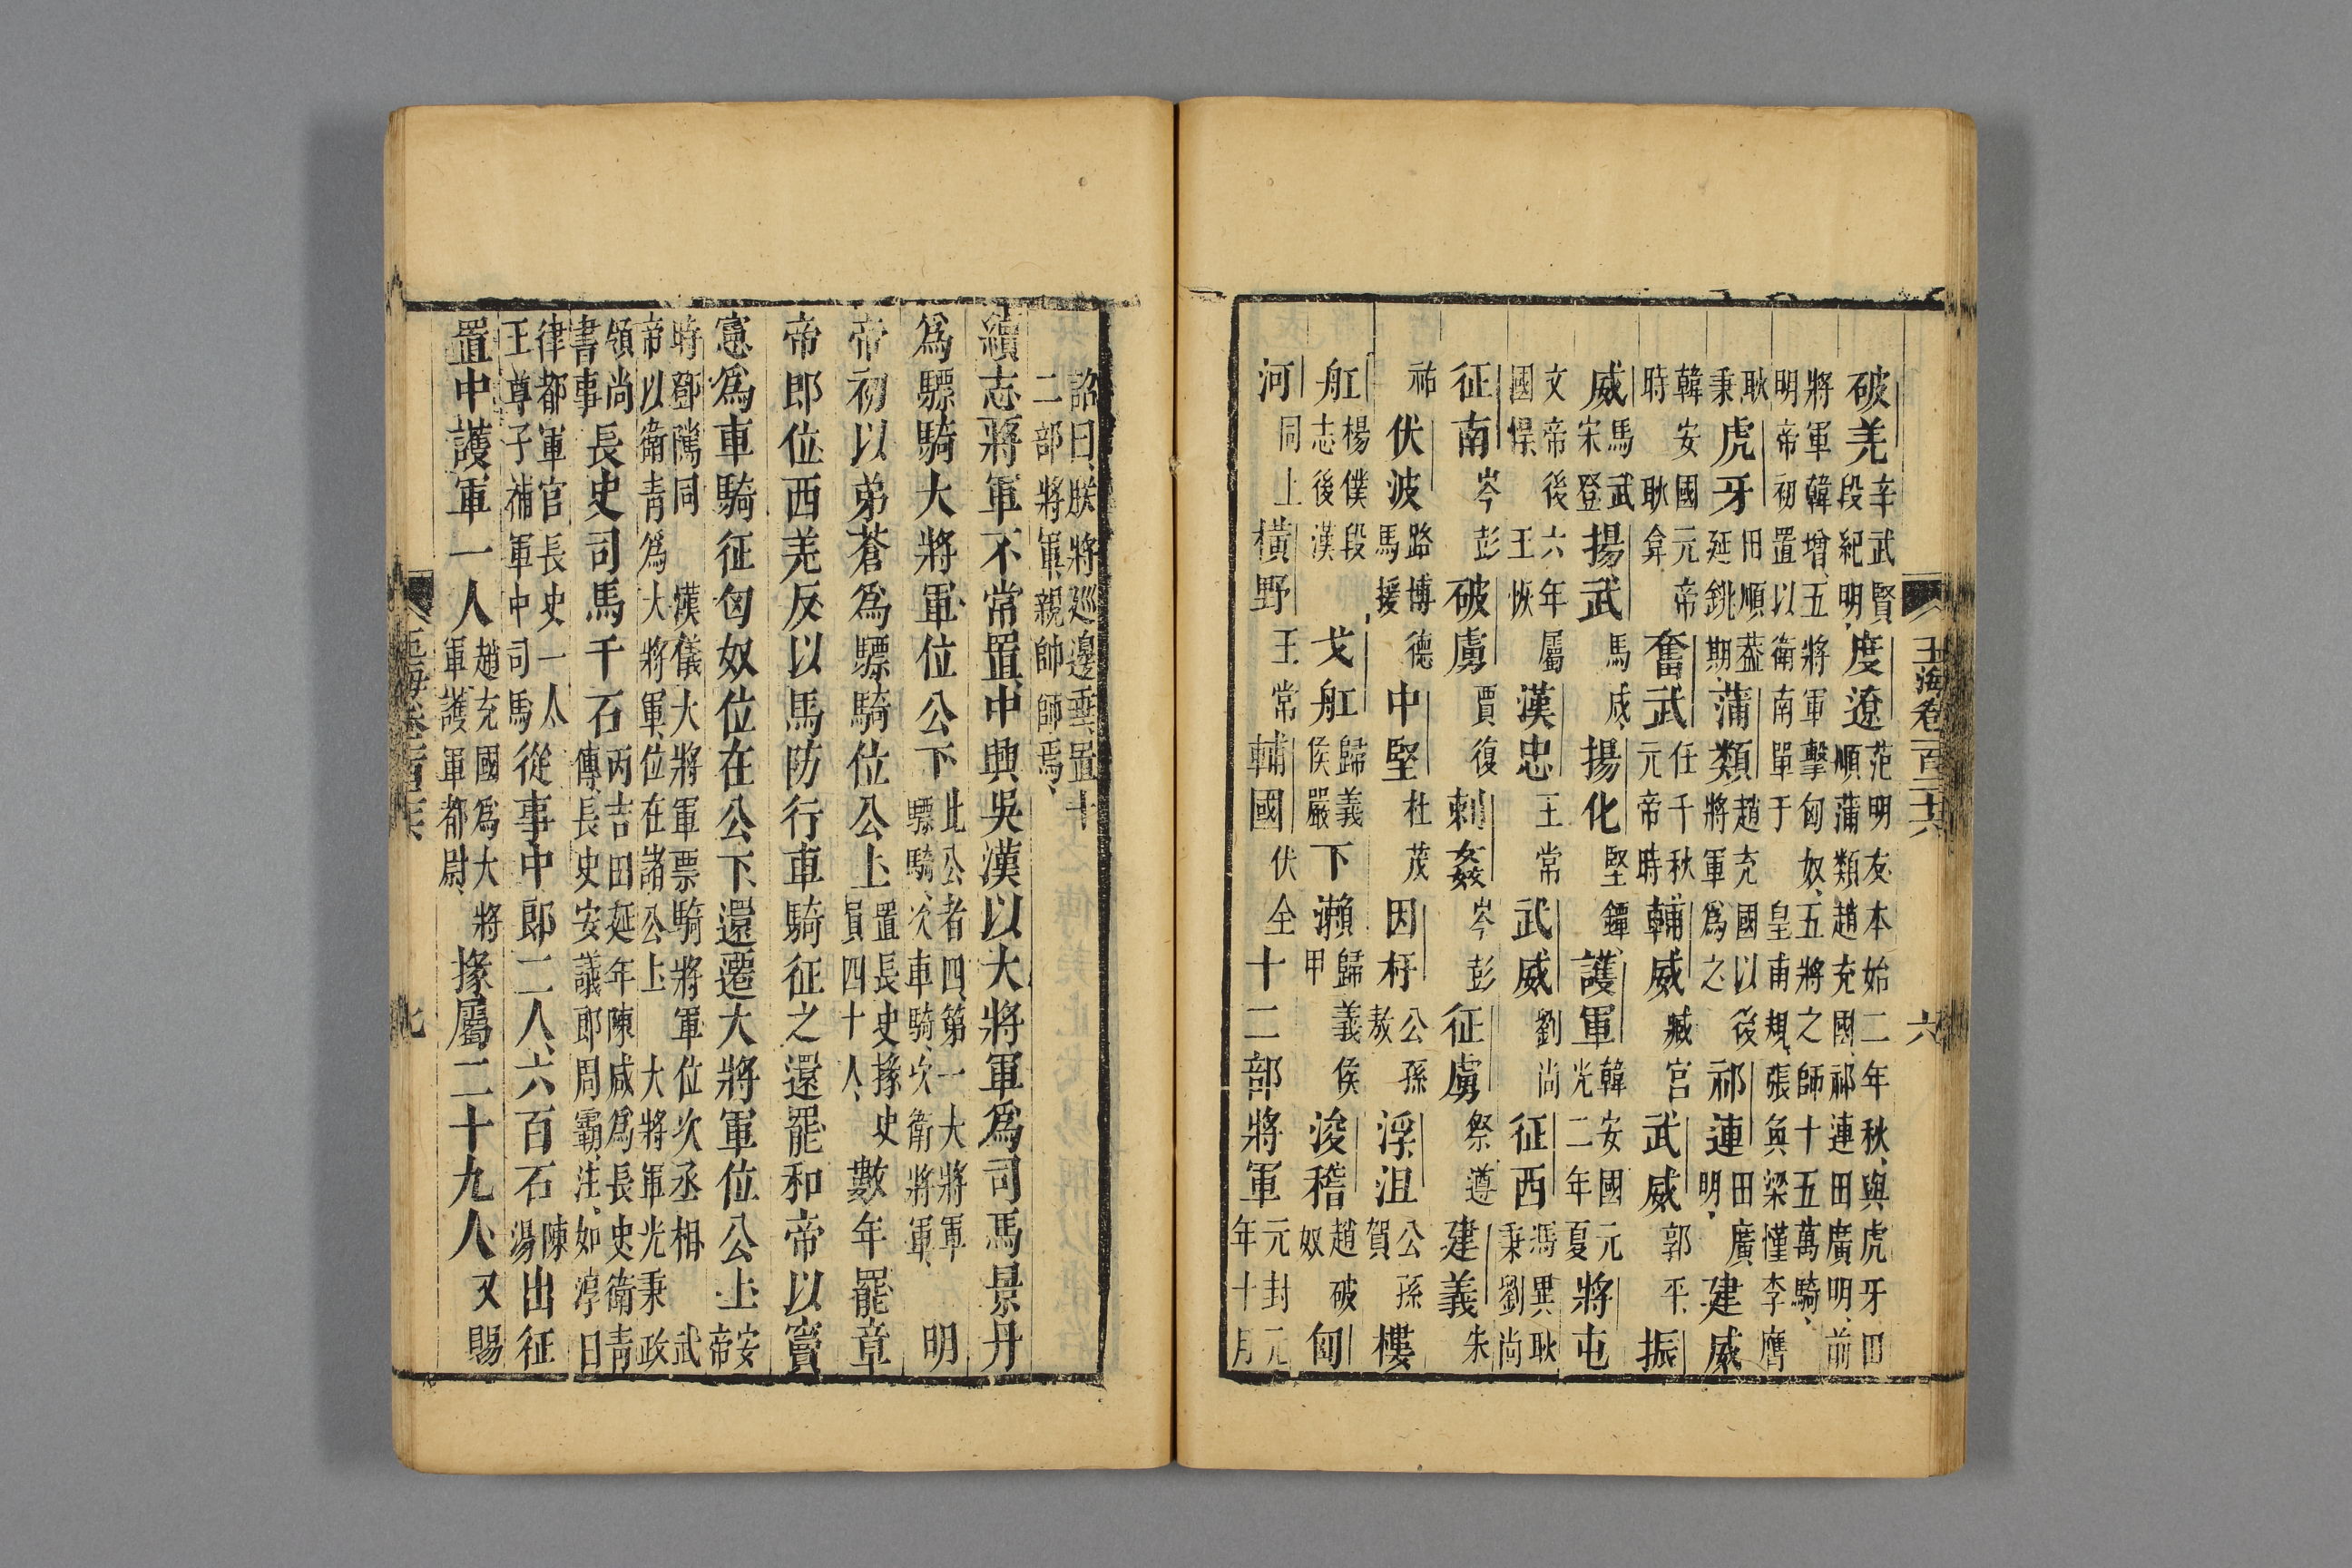 玉海卷一百三十六　六
破羌辛武賢段紀明度遼范明友本始二年秋與虎牙田順蒲類趙充國祁連田廣明前
將軍韓增五將軍擊匈奴五將之師十五萬騎明帝初置以衛南單于皇甫規張奐梁慬李膺
耿秉虎牙田順蓋延銚期蒲類趙充國以後將軍為之祁連田廣明建威
韓安國元帝時耿弇奮武任千秋元帝時輔威臧宮武威郭平振
威馬武宋登揚武馬成揚化堅鐔護軍韓安國元光二年夏將屯
文帝後六年屬國悍王恢漢忠王常武威劉尚征西馮異耿秉劉尚
征南岑彭破虜賈復刺姦岑彭征虜祭遵建義朱
祐伏波路博德馬援中堅杜茂因杅公孫敖浮沮公孫賀樓
舡楊僕段志後漢戈舡歸義侯嚴下瀨歸義侯甲浚稽趙破奴匈
河同上橫野王常輔國伏全十二部將軍元封元年十月
詔曰朕將廵邊垂置十二部將軍親帥師焉
續志將軍不常置中興吳漢以大將軍爲司馬景丹
爲驃騎大將軍位公下此公者四第一大將軍驃騎次車騎次衛將軍明
帝初以弟蒼爲驃騎位公上置長史掾史員四十人數年罷章
帝即位西羌反以馬防行車騎征之還罷和帝以竇
憲爲車騎征匈奴位在公下還遷大將軍位公上安帝
時鄧隲同漢儀大將軍票騎將軍位次丞相武帝以衛青爲大將軍位在諸公上大將軍光秉政
領尚書事長史司馬千石丙吉田延年陳咸爲長史衛青傳長史安議郎周霸注如淳曰
律都軍官長史一人王尊子補軍中司馬從事中郎二人六百石陳湯出征
置中護軍一人趙充國爲大將軍護軍都尉掾屬二十九人又賜
玉海卷一百三十六　七